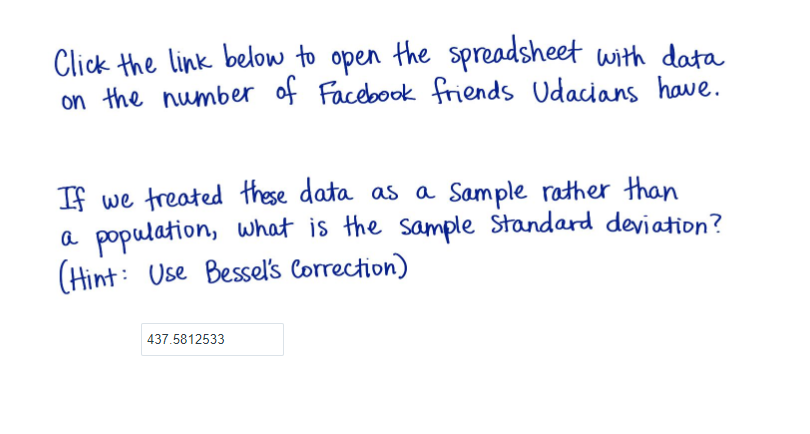 Click the link below to open the spreadsheet with data
on the number of Facebook friends Udacians have.
If we treated these data as a sample rather than
a population, what is the sample standard deviation?
(Hint: Use Bessel's Correction)
437.5812533